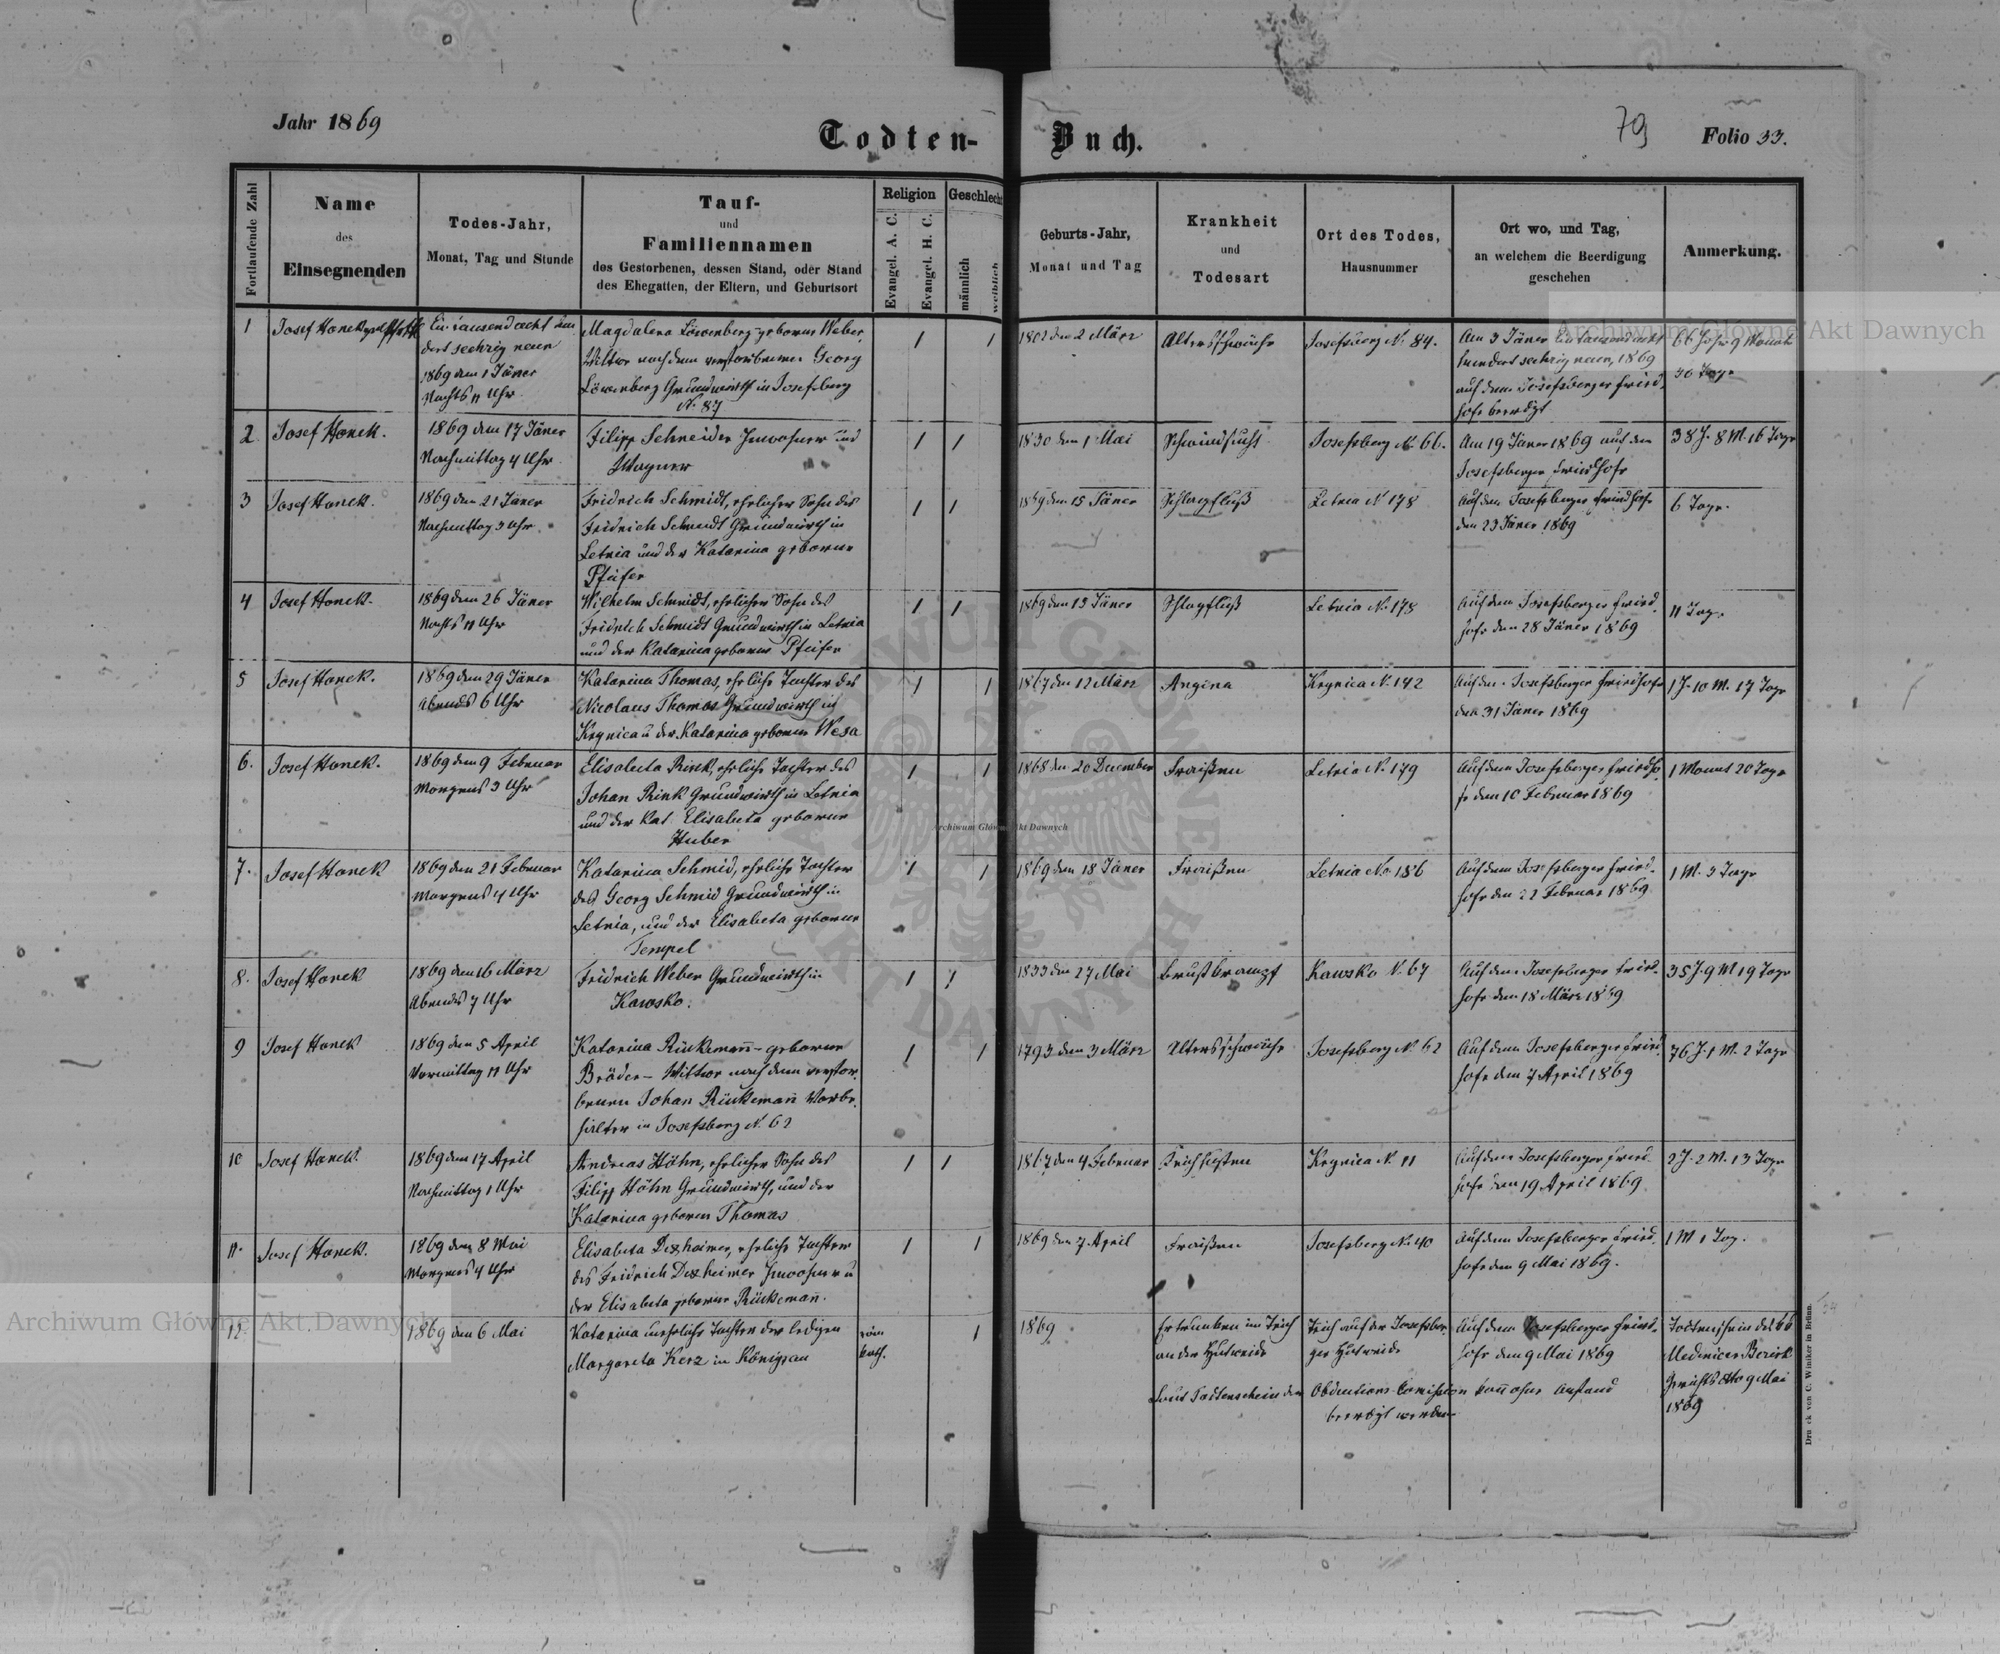 Jahr 1869
Todten-Buch.
79
Folio 33.
Fortlaufende Zahl
Name
des
Einsegnenden
Todes-Jahr,
Monat, Tag und Stunde
Tauf-
und
Familiennamen
des Gestorbenen, dessen Stand, oder Stand
des Ehegatten, der Eltern, und Geburtsort
Religion
Evangel. A. C.
Evangel. H. C.
Geschlecht
männlich
weiblich
Geburts-Jahr,
Monat und Tag
Krankheit
und
Todesart
Ort des Todes,
Hausnummer
Ort wo, und Tag,
an welchem die Beerdigung
geschehen
Anmerkung.
1
Josef Hanek
Ein tausend acht hun
dert sechzig neun
1869 den 1 Jäner
Nachts 11 Uhr
Magdalena Löwenberg geborene Weber,
Wittwe nach dem verstorbenen Georg
Löwenberg Grundwirth in Josefsberg
N. 87
1802 den 2 März
Altersschwäche
Josefsberg N. 84.
Am 3 Jäner Ein tausend acht
hundert sechzig neun, 1869
auf dem Josefsberger Fried
hofe beerdigt
66 Jahr 9 Monate
30 Tage
2
Josef Hanek.
1869 den 17 Jäner
Nachmittag 4 Uhr
Filipp Schneider Inwohner und
Wagner
1830 den 1 Mai
Schwindsucht
Josefsberg N. 66.
Am 19 Jäner 1869 auf dem
Josefsberger Friedhofe
38 J. 8 M. 16 Tage
3
Josef Hanek.
1869 den 21 Jäner
Nachmittag 3 Uhr
Fridrich Schmidt, ehelicher Sohn des
Fridrich Schmidt Grundwirth in
Letnia und der Katarina geborene
Pfeifer
1869 den 15 Jäner
Schlagfluß
Letnia N. 178
Auf dem Josefsberger Friedhofe
den 23 Jäner 1869
6 Tage.
4
Josef Hanek.
1869 den 26 Jäner
Nachts 11 Uhr
Wilhelm Schmidt, ehelicher Sohn des
Fridrich Schmidt Grundwirth in Letnia
und der Katarina geborene Pfeifer
1869 den 15 Jäner
Schlagfluß
Letnia N. 178
Auf dem Josefsberger Fried.
hofe den 28 Jäner 1869
11 Tage
5
Josef Hanek.
1869 den 29 Jäner
Abends 6 Uhr
Katarina Thomas, eheliche Tochter des
Nicolaus Thomas Grundwirth in
Krynica u der Katarina geborene Wesa
1867 den 12 März
Angina
Krynica N. 142
Auf dem Josefsberger Friedhofe
den 31 Jäner 1869
1 J. 10 M. 17 Tage
6.
Josef Hanek.
1869 den 9 Februar
Morgens 3 Uhr
Elisabeta Rink, eheliche Tochter des
Johan Rink Grundwirth in Letnia
und der Kat. Elisabeta geborene
Huber
1868 den 20 December
Fraißen
Letnia N. 179
Auf dem Josefsberger Friedho
fe den 10 Februar 1869
1 Monat 20 Tage
7.
Josef Hanek
1869 den 21 Februar
Morgens 4 Uhr
Katarina Schmid, eheliche Tochter
des Georg Schmid Grundwirth in
Letnia, und der Elisabeta geborene
Tempel
1869 den 18 Jäner
Fraißen
Letnia No. 186
Auf dem Josefsberger Fried.
hofe den 22 Februar 1869
1 M. 3 Tage
8.
Josef Hanek
1869 den 16 März
Abends 7 Uhr
Fridrich Weber Grundwirth in
Kawsko.
1833 den 27 Mai
Brustkrampf
Kawsko N. 67
Auf dem Josefsberger Fried.
hofe den 18 März 1869
35 J. 9 M 19 Tage
9
Josef Hanek
1869 den 5 April
Vormittag 11 Uhr
Katarina Rückemañ geborene
Bräder Wittwe nach dem verstor.
benen Johan Rückemañ Vorbe.
hälter in Josefsberg N. 62
1793 den 3 März
Altersschwäche
Josefsberg N. 62
Auf dem Josefsberger Fried.
hofe den 7 April 1869
76 J. 1 M. 2 Tage
10
Josef Hanek.
1869 den 17 April
Nachmittag 1 Uhr
Andreas Höhn, ehelicher Sohn des
Filipp Höhn Grundwirth, und der
Katarina geborene Thomas
1867 den 4 Februar
Keichhusten
Krynica N. 11
Auf dem Josefsberger Fried
hofe den 19 April 1869
2 J. 2 M. 13 Tage
11.
Josef Hanek.
1869 den 8 Mai
Morgens 4 Uhr
Elisabeta Dexheimer, eheliche Tochter
des Fridrich Dexheimer Inwohner u
der Elisabeta geborene Rückemañ.
1869 den 7 April
Fraißen
Josefsberg N. 40
Auf dem Josefsberger Fried.
hofe den 9 Mai 1869.
1 M 1 Tag.
12
1869 den 6 Mai
Katarina uneheliche Tochter der ledigen
Margareta Kerz in Königsau
röm
kath.
1869
Ertrunken im Teich
an der Hutweide
Teich auf der Josefsber.
ger Hutweide
Auf dem Josefsberger Fried.
hofe den 9 Mai 1869
Todtenschein des kk
Medenicer Bezirk
Gerichts dtto 9 Mai
1869
Laut Todtenschein der Obductions-Comission kañ ohne Anstand
beerdigt werden
Druck von C. Winiker in Brünn.
Archiwum Główne Akt Dawnych
Archiwum Główne Akt Dawnych
Archiwum Główne Akt Dawnych
ARCHIWUM GŁÓWNE AKT DAWNYCH